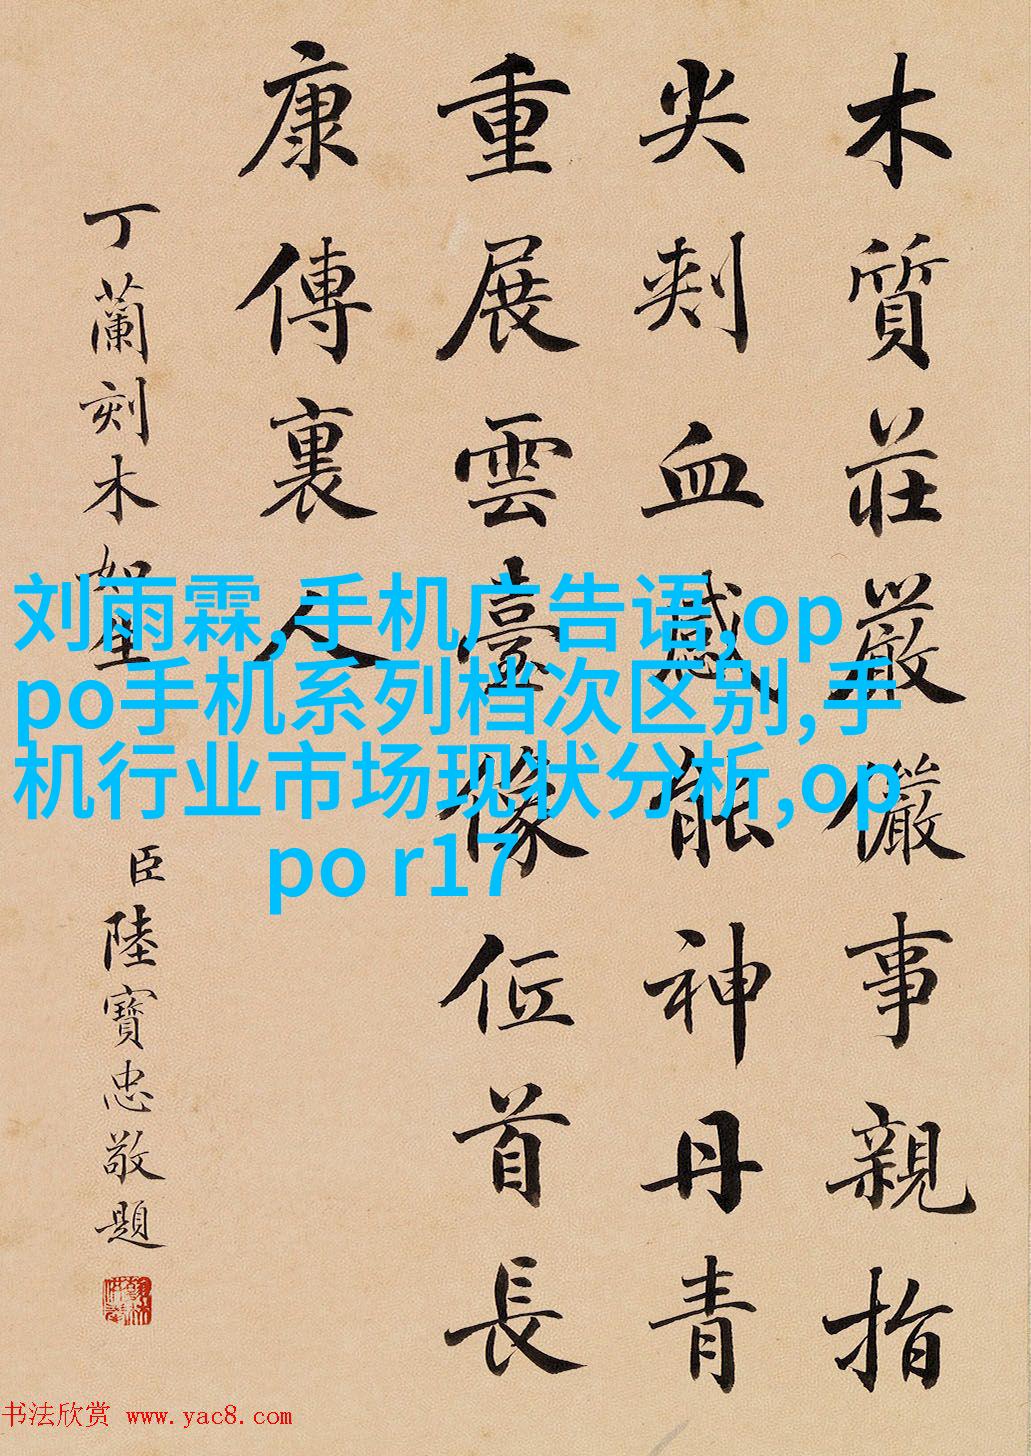 木質莊嚴儼事親指
尖刾血感能神丹青
重展雲臺像位首長
康傳裏人
丁蘭刻木如生
臣陸寶忠敬題
刘雨霖,手机广告语,op
po手机系列档次区别,手
机行业市场现状分析,op
po r17
书法欣赏 www.yac8.com